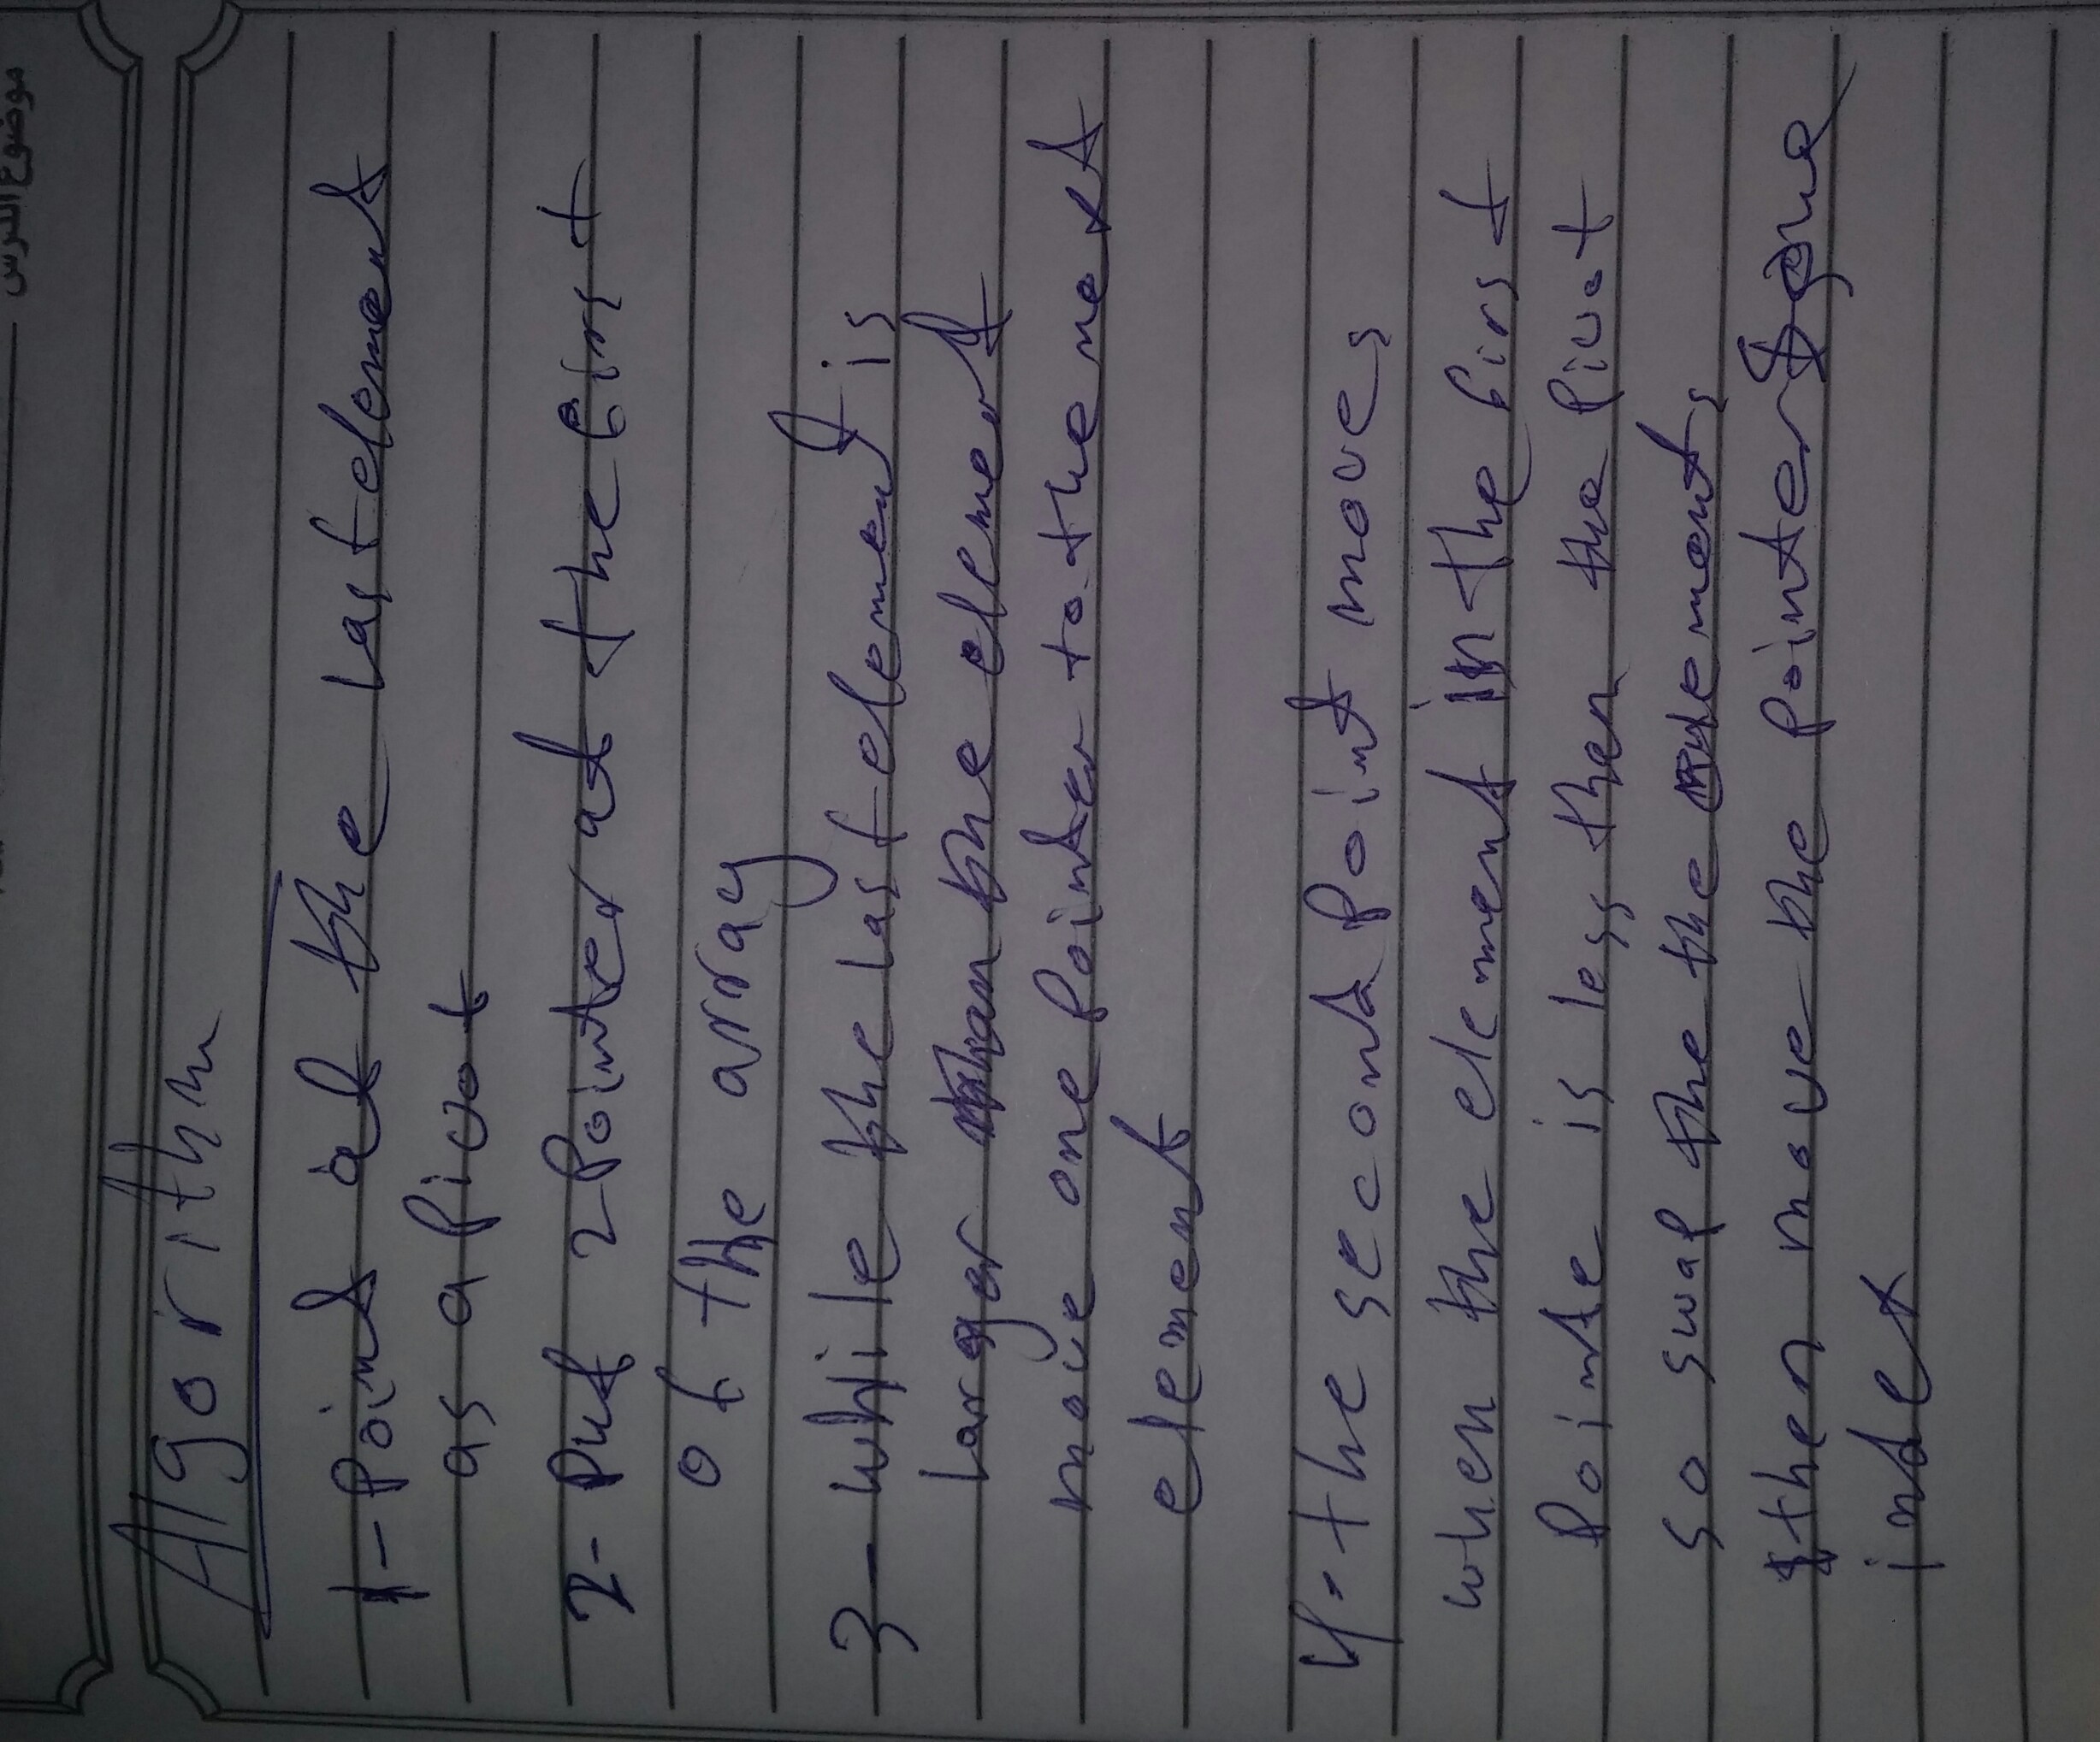 موضوع الدرس
Algorithm
1- Point at the last element
as a Pivot
2- Put 2 Pointer at the first
of the array
3- while the last element is
larger than the element
move one Pointer to the next
element
4- the second Point moves
when the element in the first
Pointe is less then the Pivot
so swap the the elements
then move the pointer one
index